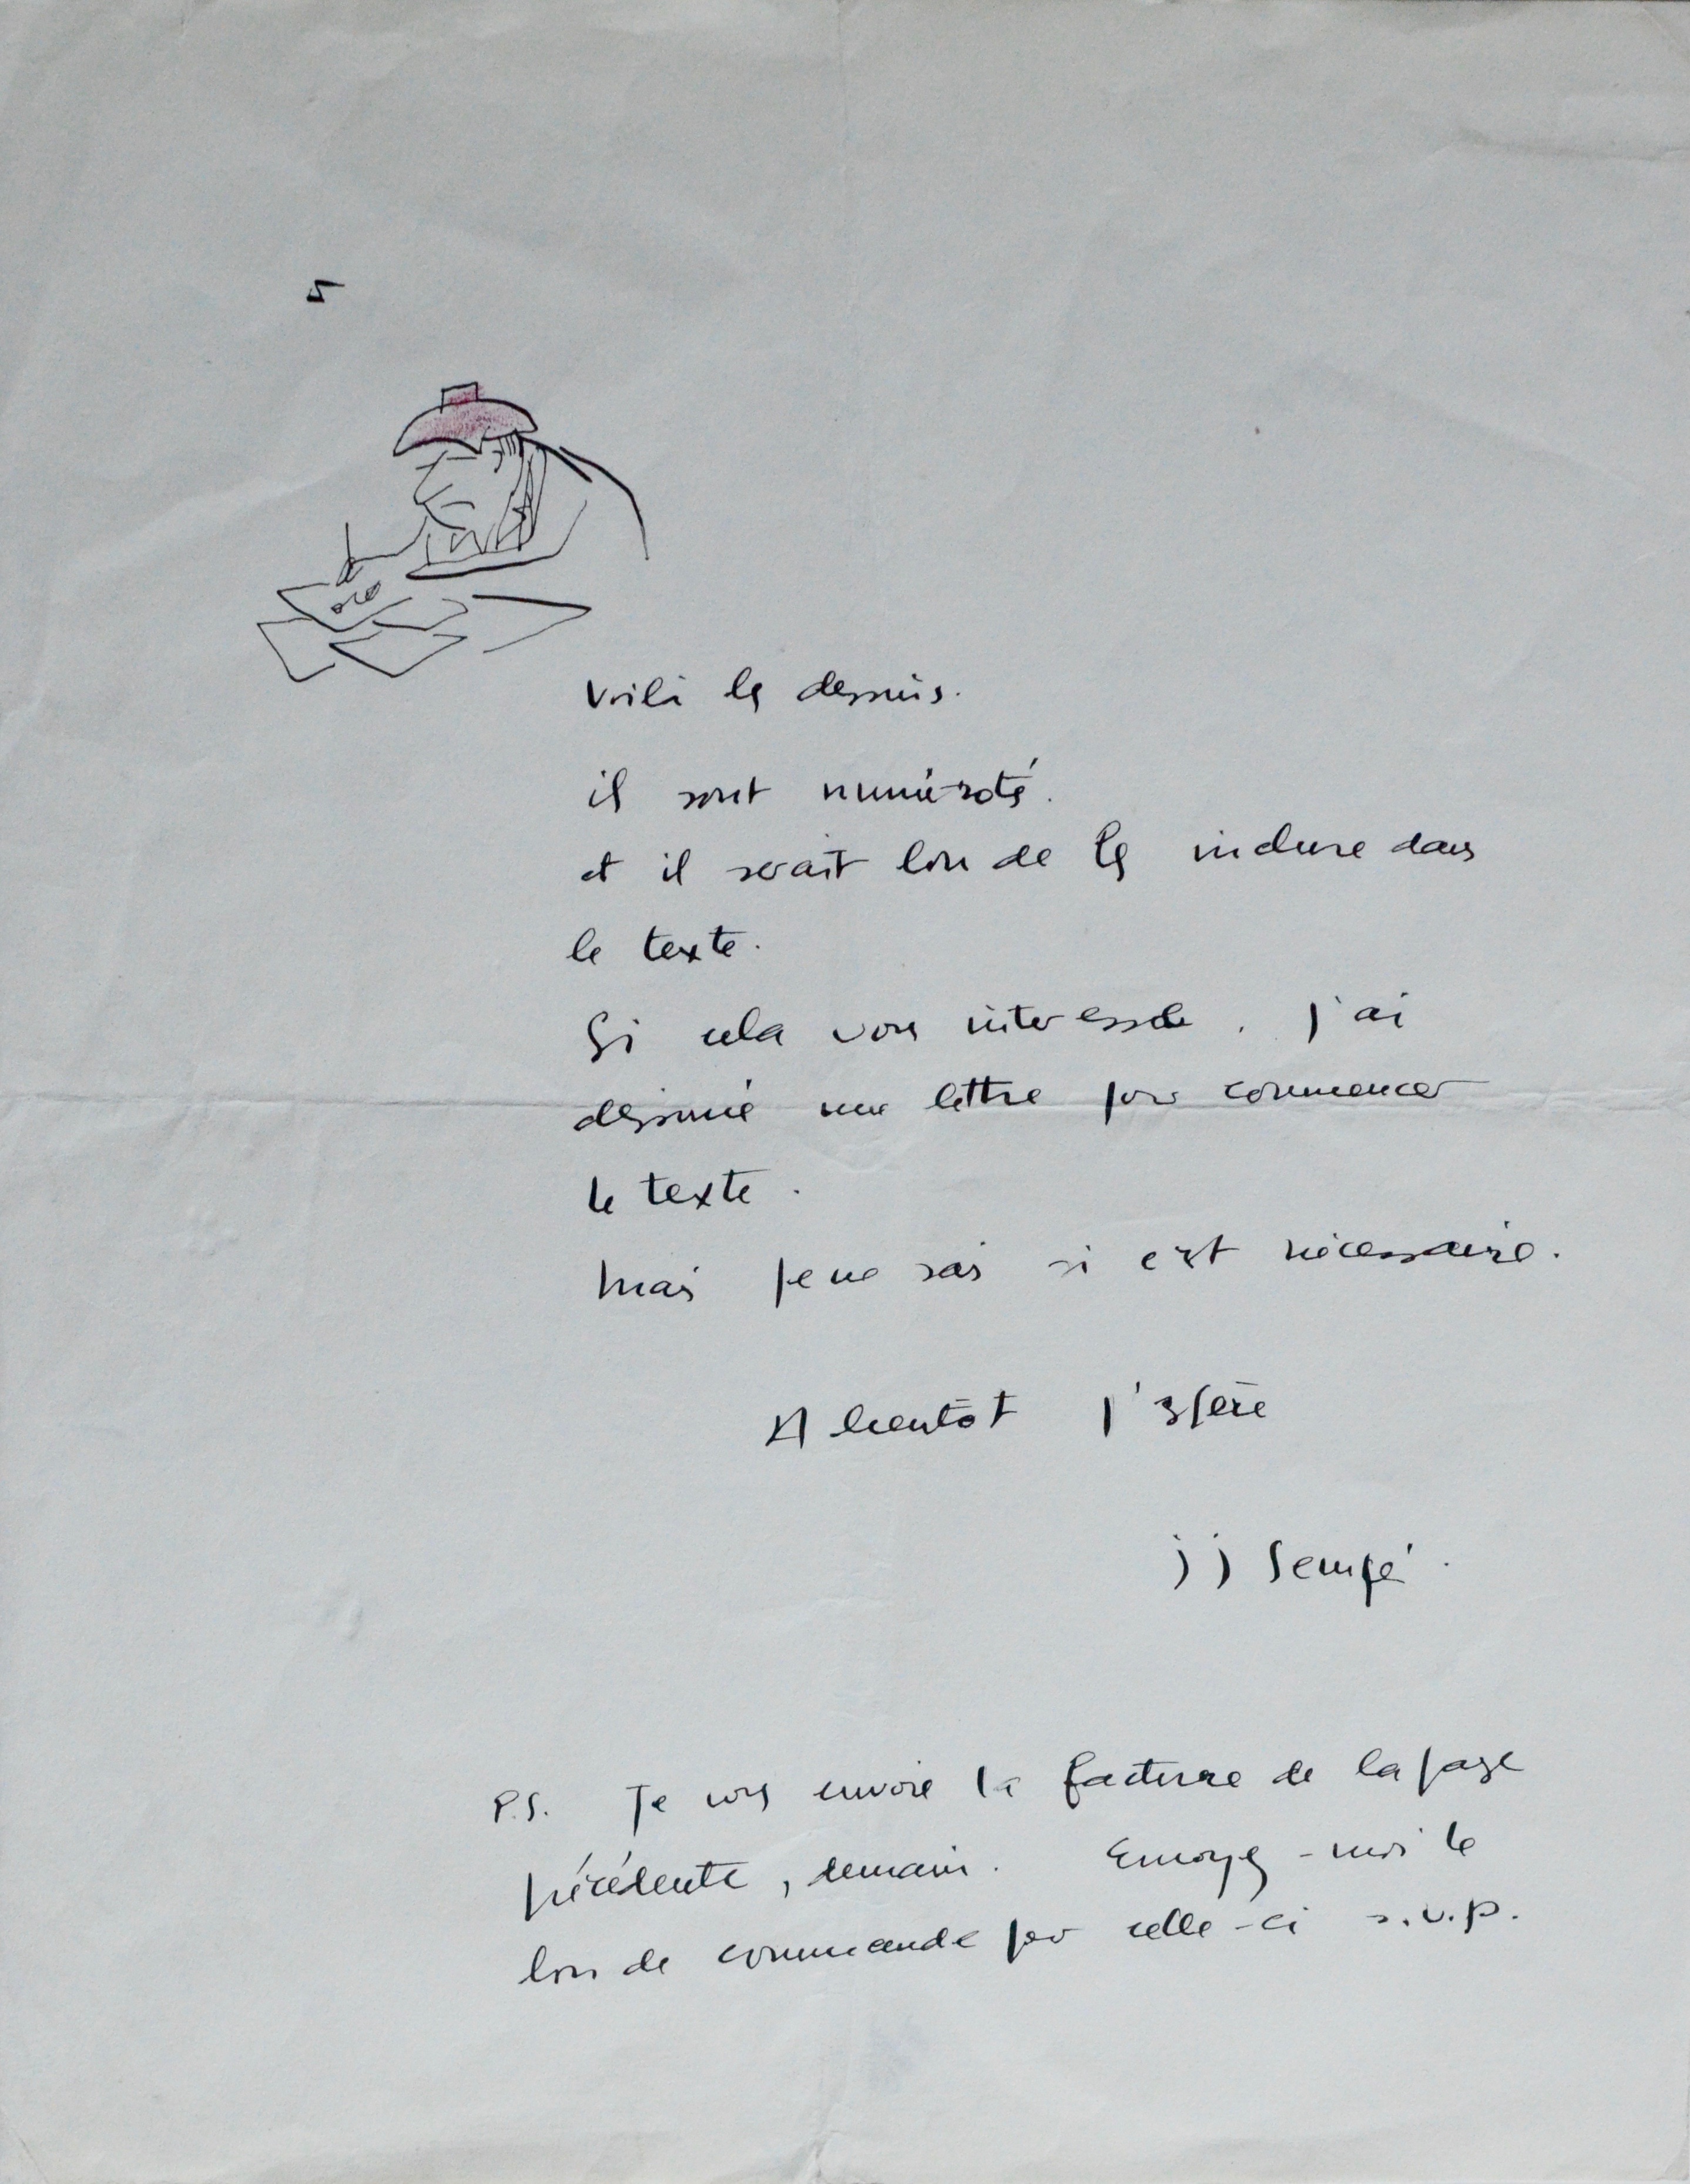 5
Voilà les dessins.
il sont numéroté.
et il serait bon de les inclure dans
le texte.
Si cela vous interesse, j'ai
dessiné une lettre pour commencer
le texte.
Mais je ne sais si c'est nécessaire.
A bientôt j'espère
JJ Sempé.
P.S. Je vous envoie la facture de la page
précédente, demain. Envoyez-moi le
bon de commande pour celle-ci s.v.p.